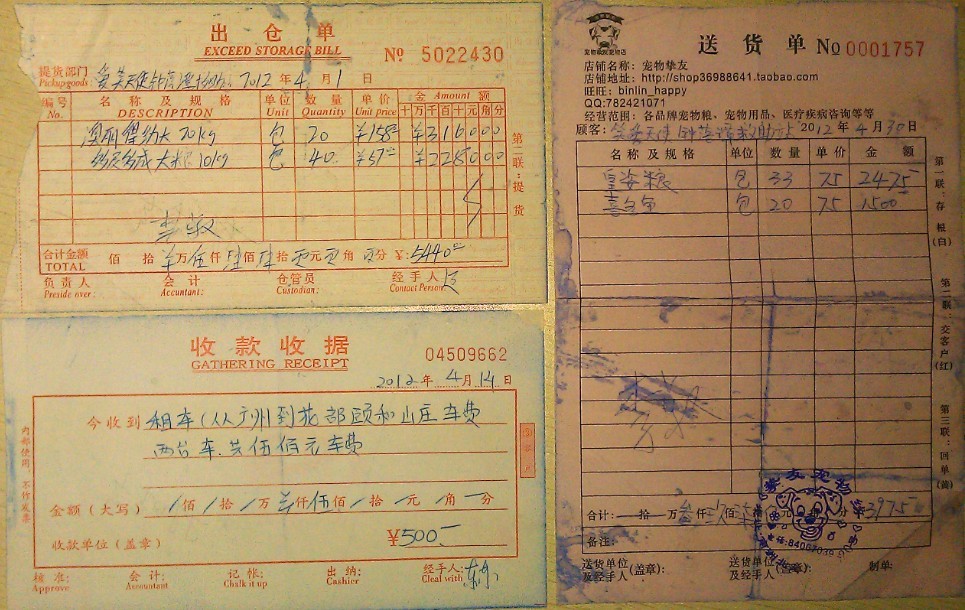 出仓单
EXCEED STORAGE BILL
No 5022430
提货部门
Pickup goods:
2012年4月1日
编号 No.
名称及规格 DESCRIPTION
单位 Unit
数量 Quantity
单价 Unit price
金 Amount 额
十万千百十元角分
20kg 包 20 ¥158 ¥316000
大粮 10kg 包 40 ¥57 ¥228000
第二联:提货
合计金额 TOTAL 佰 拾 万伍仟肆佰肆拾零元零角零分 ¥:5440
负责人 Preside over:
会计 Accountant:
仓管员 Custodian:
经手人 Contact Person:
收款收据
GATHERING RECEIPT
04509662
2012年4月14日
今收到 租车(从广州到花都颐和山庄车费
两台车.共伍佰元车费
金额(大写) 佰 拾 万 仟伍佰 拾 元 角 分
收款单位(盖章) ¥500
内部使用,不作发票
核准: Approve
会计: Accountant
记帐: Chalk it up
出纳: Cashier
经手人: Cleal with
送货单 No 0001757
店铺名称:宠物挚友
店铺地址:http://shop36988641.taobao.com
旺旺:binlin_happy
QQ:782421071
经营范围:各品牌宠物粮、宠物用品、医疗疾病咨询等等
顾客: 2012年4月30日
名称及规格 单位 数量 单价 金额
皇姿粮 包 33 75 2475
包 20 75 1500
第一联:存根(白)
第二联:交客户(红)
第三联:回单(黄)
合计: 拾 万叁仟 佰 拾 元 角 分 ¥3975
备注:
送货单位及经手人(盖章):
送货单位及经手人(盖章):
制单:
挚友宠物